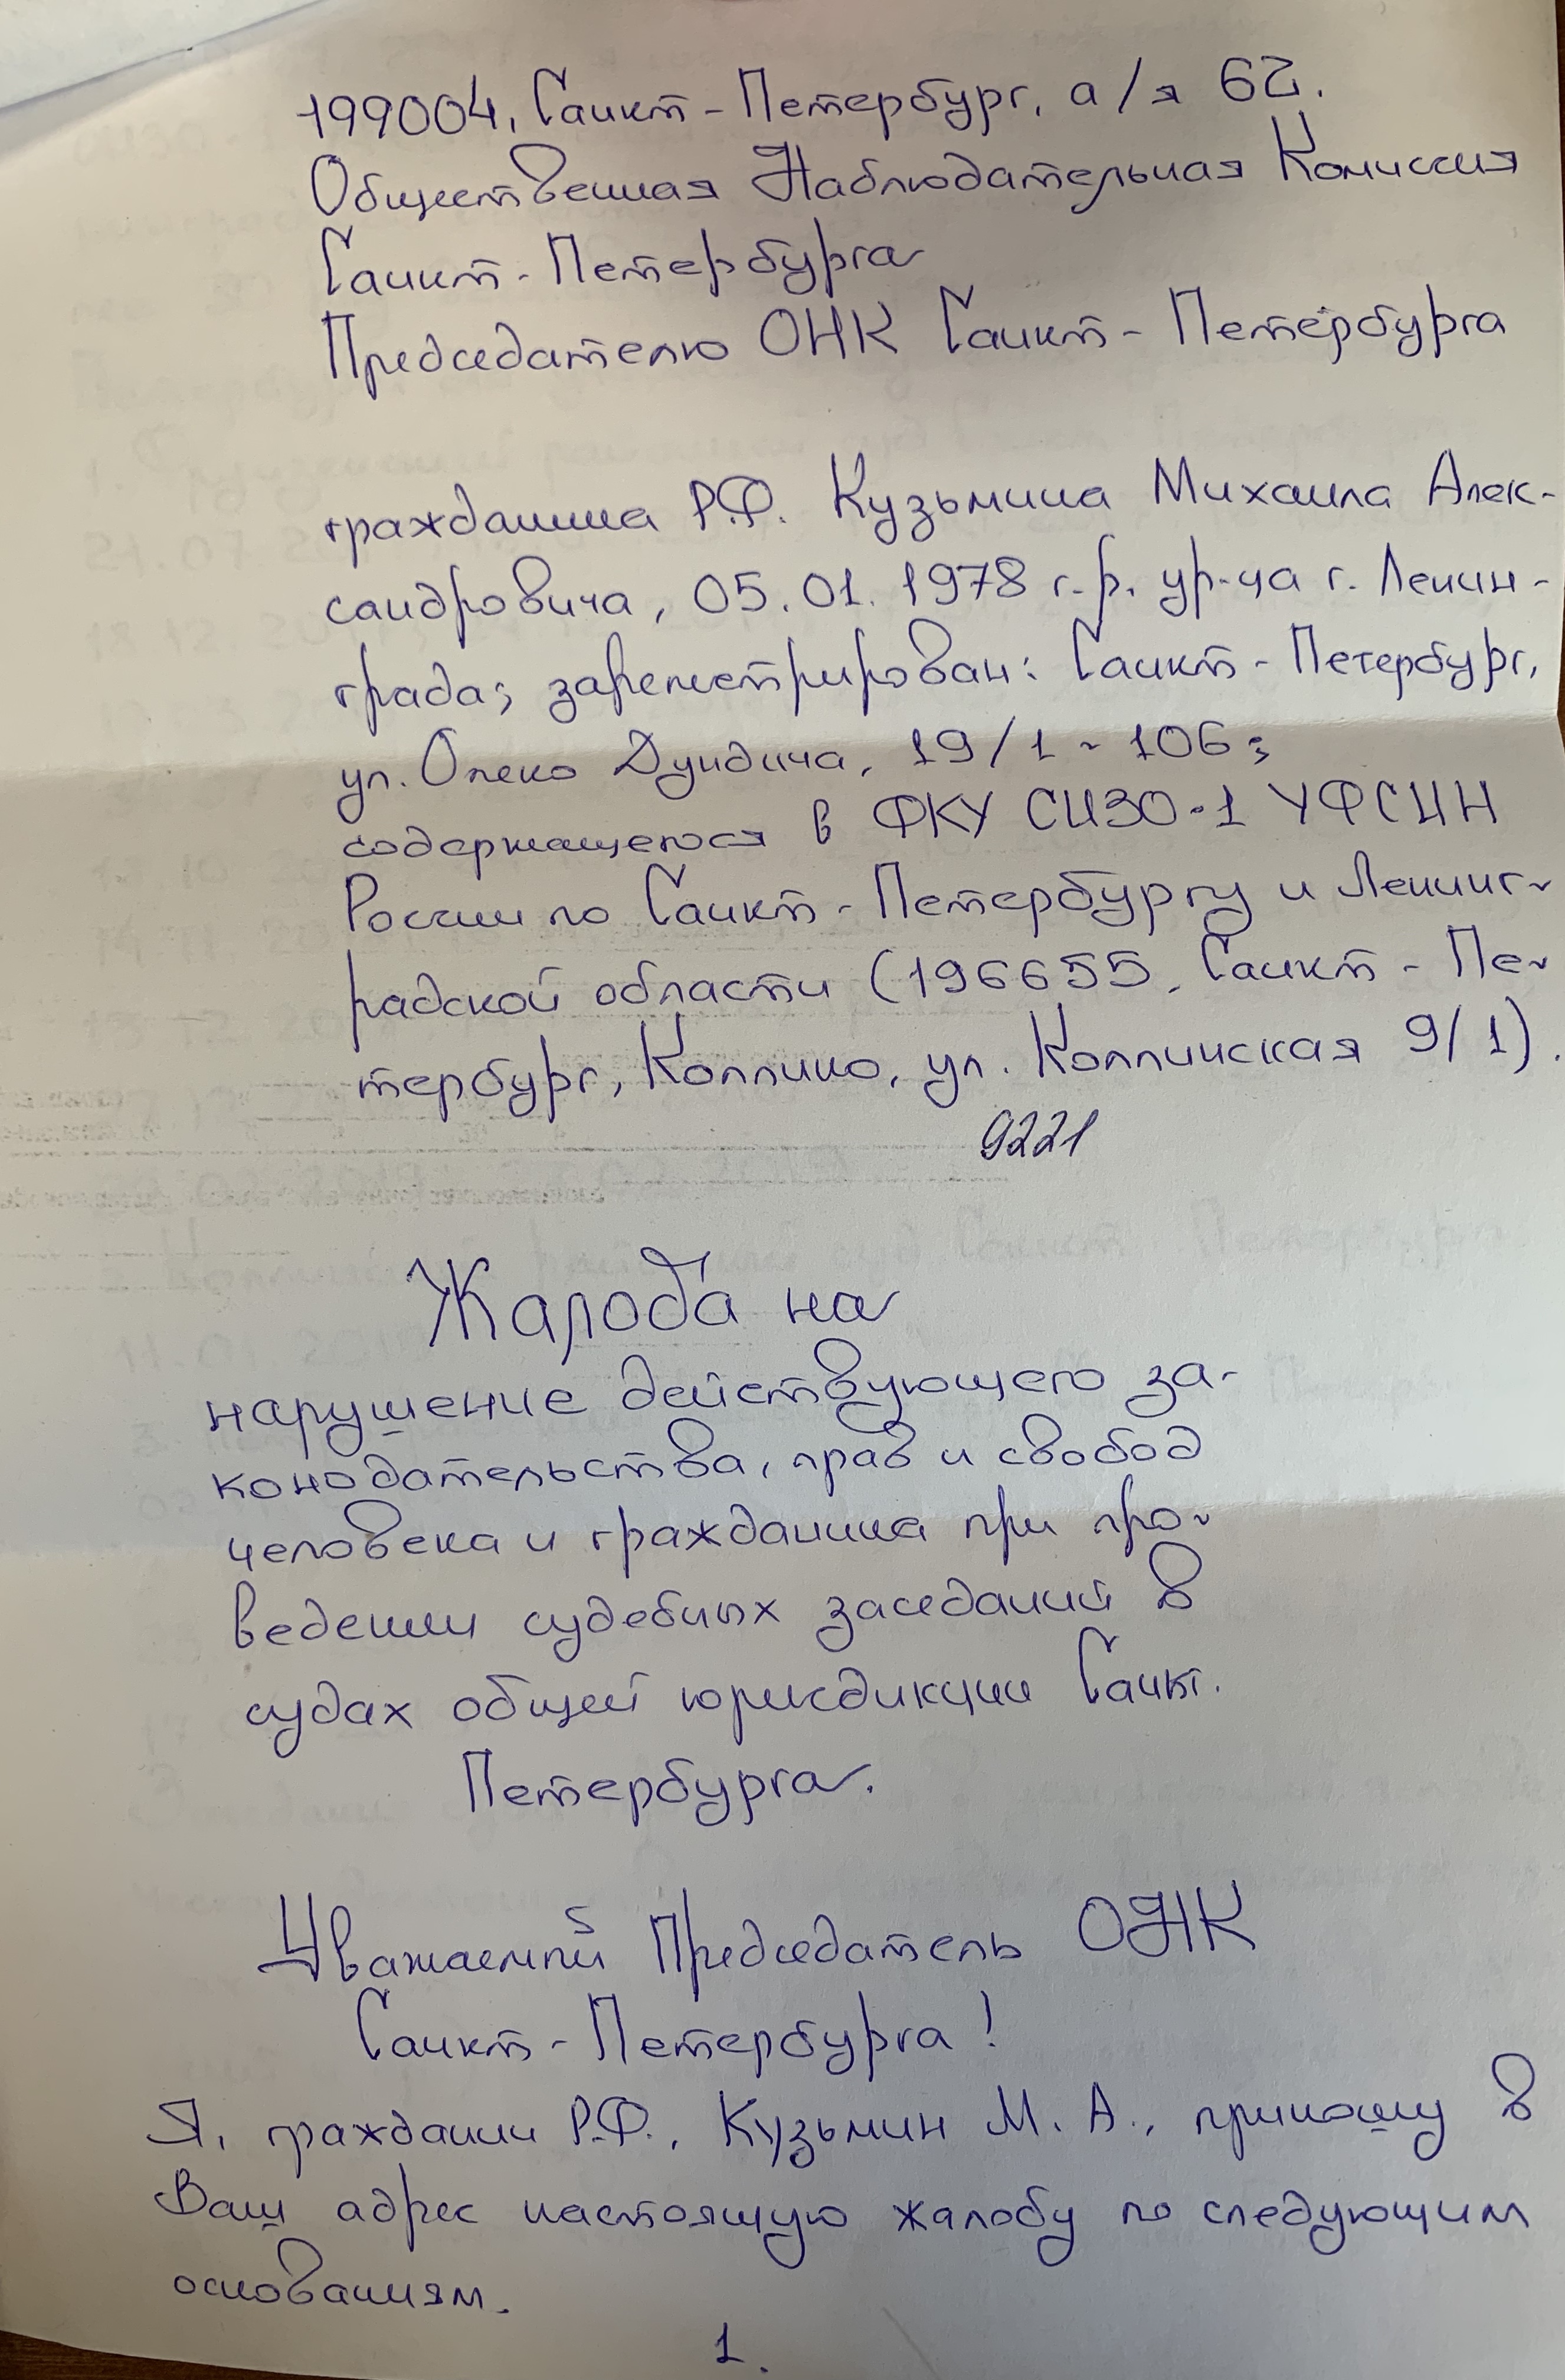 199004, Санкт-Петербург, а/я 62.
Общественная Наблюдательная Комиссия
Санкт-Петербурга
Председателю ОНК Санкт-Петербурга
гражданина Р.Ф. Кузьмина Михаила Алек-
сандровича, 05.01.1978 г.р. ур-ча г. Ленин-
града; зарегистрирован: Санкт-Петербург,
ул. Олеко Дундича, 19/1-106;
содержащегося в ФКУ СИЗО-1 УФСИН
России по Санкт-Петербургу и Ленинг-
радской области (196655, Санкт-Пе-
тербург, Колпино, ул. Колпинская 9/1).
9221
Жалоба на
нарушение действующего за-
конодательства, прав и свобод
человека и гражданина при про-
ведении судебных заседаний в
судах общей юрисдикции Санкт.
Петербурга.
Уважаемый Председатель ОНК
Санкт-Петербурга!
Я, гражданин Р.Ф., Кузьмин М. А., приношу в
Ваш адрес настоящую жалобу по следующим
основаниям.
1.